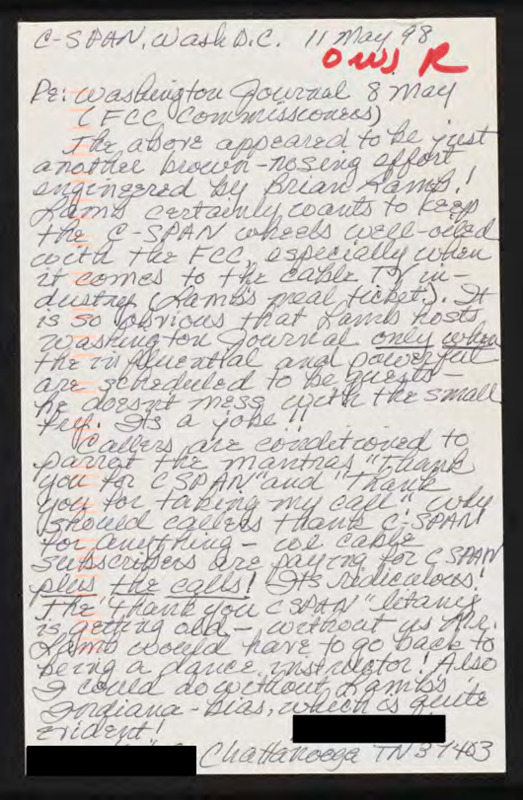 C-SPAN, Wash D.C. 11 May 98
OWS R
Re: Washington Journal 8 May
(FCC Commissioners)
The above appeared to be just
another brown-nosing effort
engineered by Brian Lamb!
Lamb certainly wants to keep
the C-SPAN wheels well-oiled
with the FCC, especially when
it comes to the cable TV in-
dustry (Lamb's meal ticket). It
is so obvious that Lamb hosts
Washington Journal only when
the influential and powerful
are scheduled to be guests -
he doesn't mess with the small
fry. Its a joke!!
Callers are conditioned to
parrot the mantras "Thank
you for CSPAN" and "Thank
you for taking my call". Why
should callers thank C-SPAN
for anything - we cable
subscribers are paying for CSPAN
plus the calls! Its rediculous!
The "Thank you CSPAN" litany
is getting old - without us Mr.
Lamb would have to go back to
being a dance instructor! Also
I could do without Lamb's
Indiana-bias, which is quite
evident!
Chattanooga TN 37403